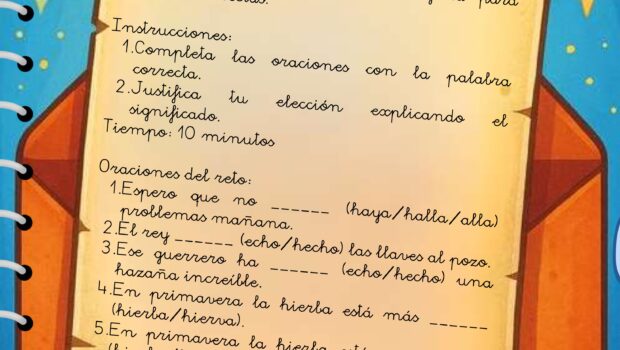 para
Instrucciones:
1.Completa las oraciones con la palabra
correcta.
2.Justifica tu elección explicando el
significado.
Tiempo: 10 minutos
Oraciones del reto:
1.Espero que no ______ (haya/halla/alla)
problemas mañana.
2.El rey ______ (echo/hecho) las llaves al pozo.
3.Ese guerrero ha ______ (echo/hecho) una
hazaña increíble.
4.En primavera la hierba está más ______
(hierba/hierva).
5.En primavera la hierba